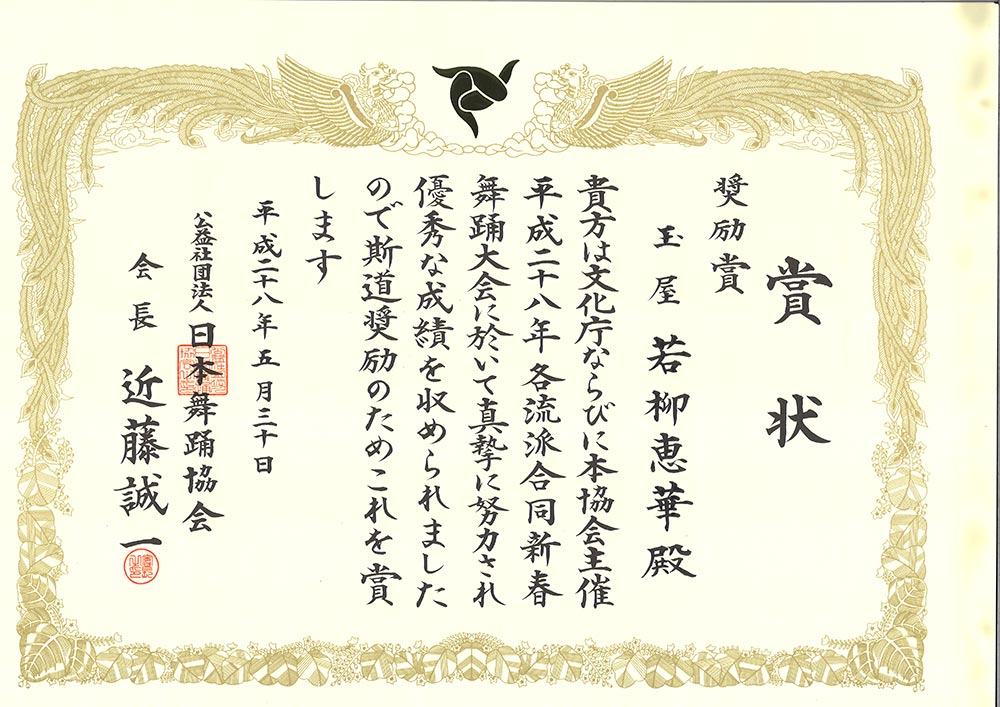 賞状
奨励賞
玉屋 若柳恵華殿
貴方は文化庁ならびに本協会主催
平成二十八年各流派合同新春
舞踊大会に於いて真摯に努力され
優秀な成績を収められました
ので斯道奨励のためこれを賞
します
平成二十八年五月三十日
公益社団法人 日本舞踊協会
会長 近藤誠一